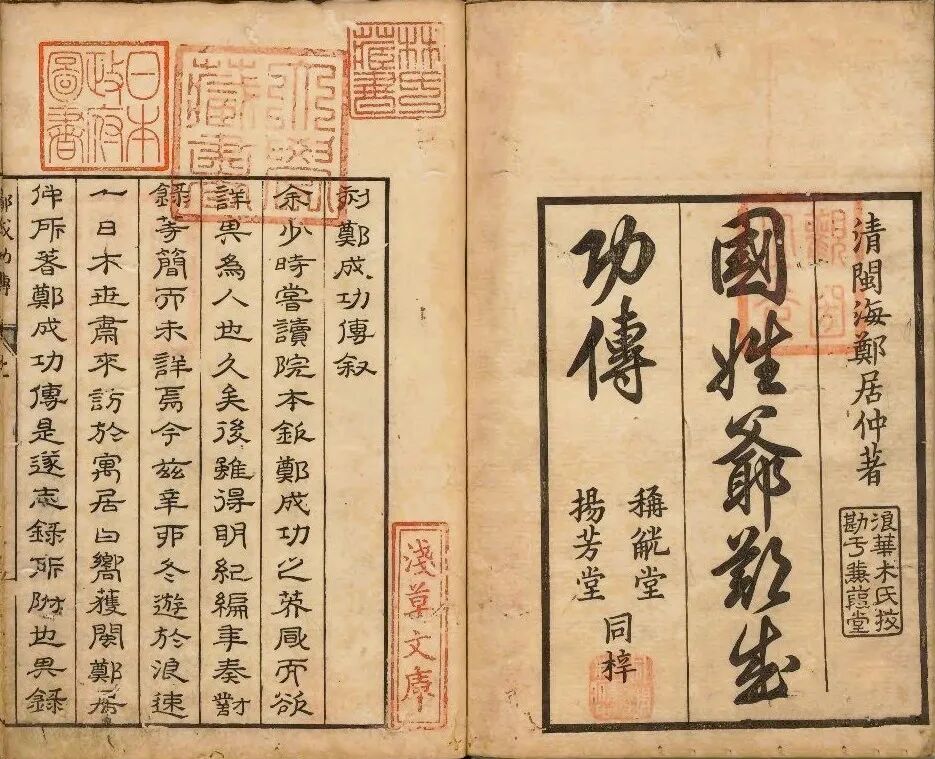 清閩海鄭居仲著
國姓爺鄭成
功傳
稱觥堂
揚芳堂
同梓
浪華木氏挍
勘于蒹葭堂
林氏藏書
日本政府圖書
淺草文庫
刻鄭成功傳叙
余少時嘗讀院本鄭成功之而欲
詳其為人也久矣後雖得明紀編年奏對
錄等簡而未詳焉今茲辛卯冬遊於浪速
一日木世肅來訪於寓居曰嚮獲閩鄭居
仲所著鄭成功傳是遂志錄所附也其錄